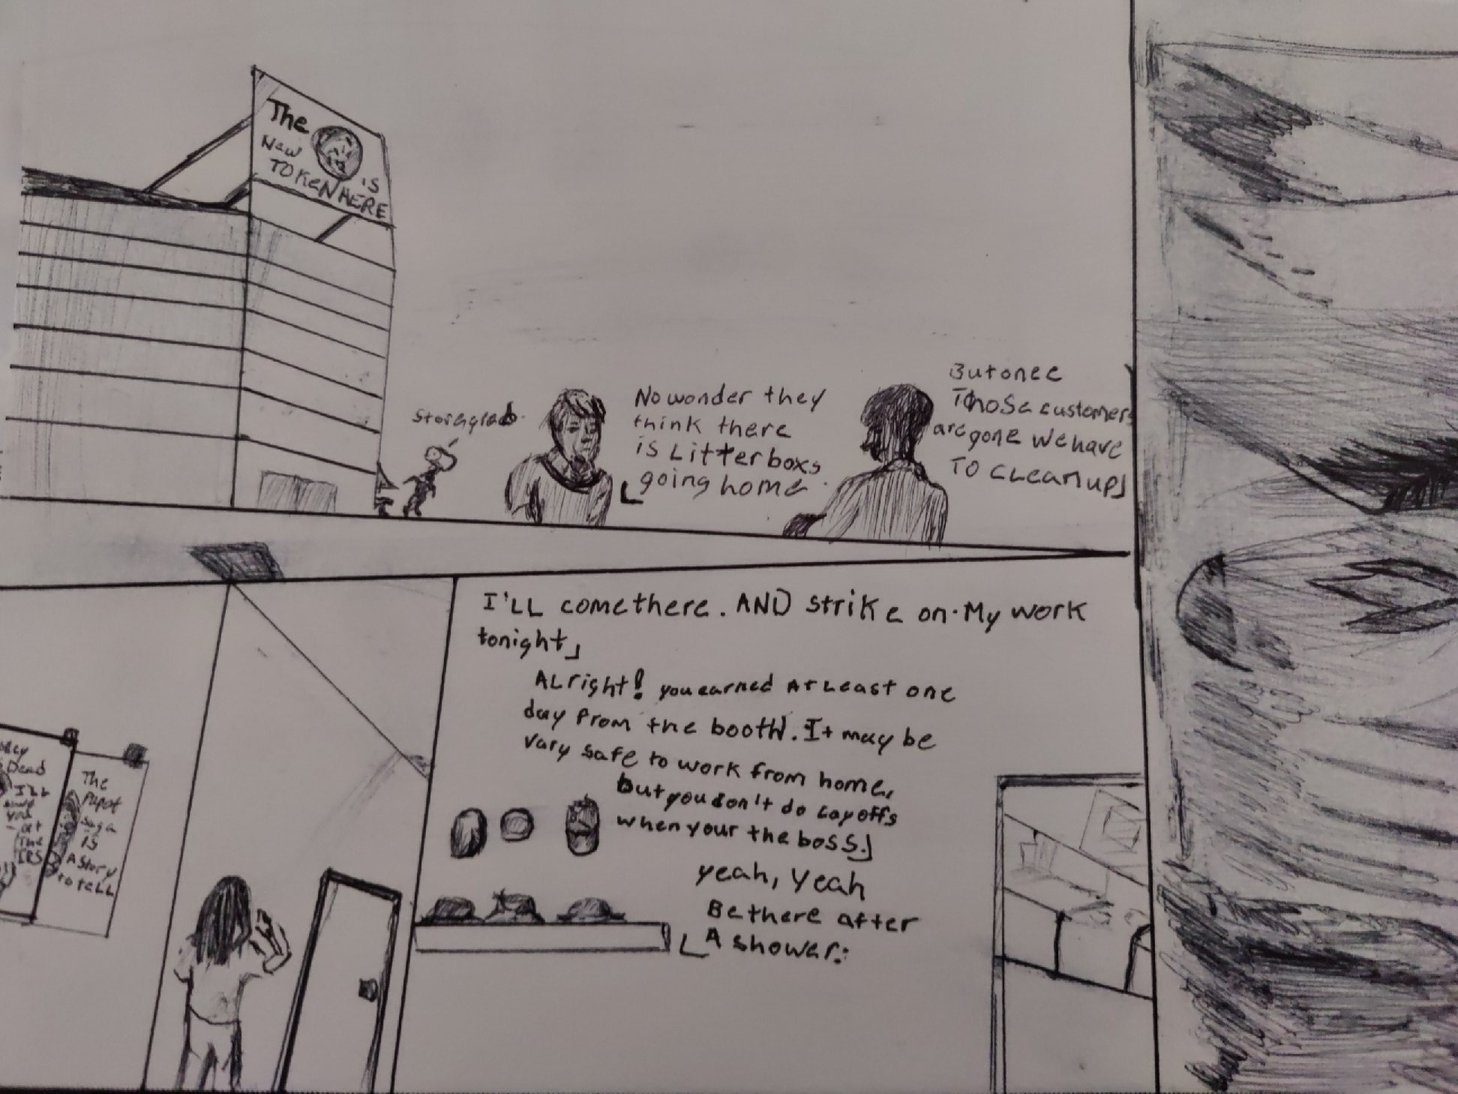 The
New
IS
TOKEN HERE
No wonder they
think there
is Litterboxs
going home.
But once
Those customers
are gone we have
TO cleanup
I'LL come there. AND strike on. My work
tonight
ALright! you earned At Least one
day from the booth. It may be
vary safe to work from home,
but you don't do Layoffs
when your the boss.
yeah, yeah
Be there after
A shower.
Dead
I'LL
you
at
The
IRS
The
Pupat
saga
is
A story
to teLL